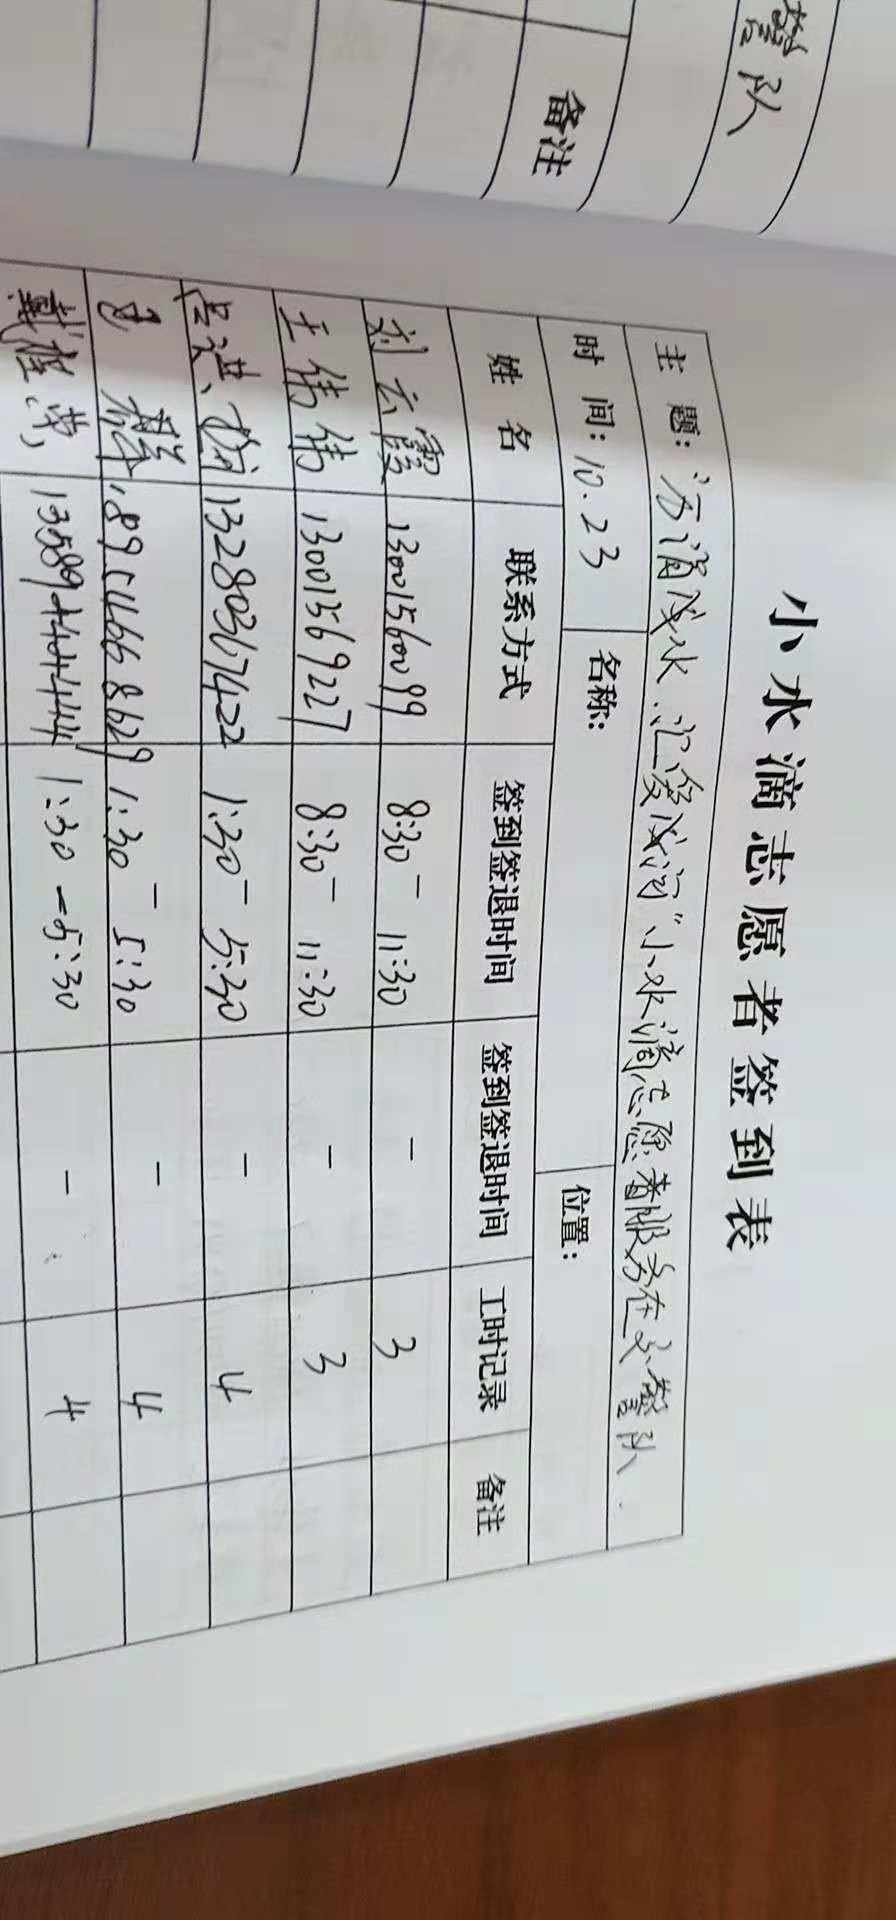 警队
备注
小水滴志愿者签到表
主 题：滴滴成水．汇爱成河"小水滴志愿者服务在交警队．
时 间：10.23 名称： 位置：
姓 名 联系方式 签到签退时间 签到签退时间 工时记录 备注
刘云霞 13001560099 8:30 - 11:30 - 3
王伟伟 13001569227 8:30 - 11:30 - 3
13280367422 1:30 - 5:30 - 4
1:30 - 5:30 - 4
1:30 - 5:30 - 4